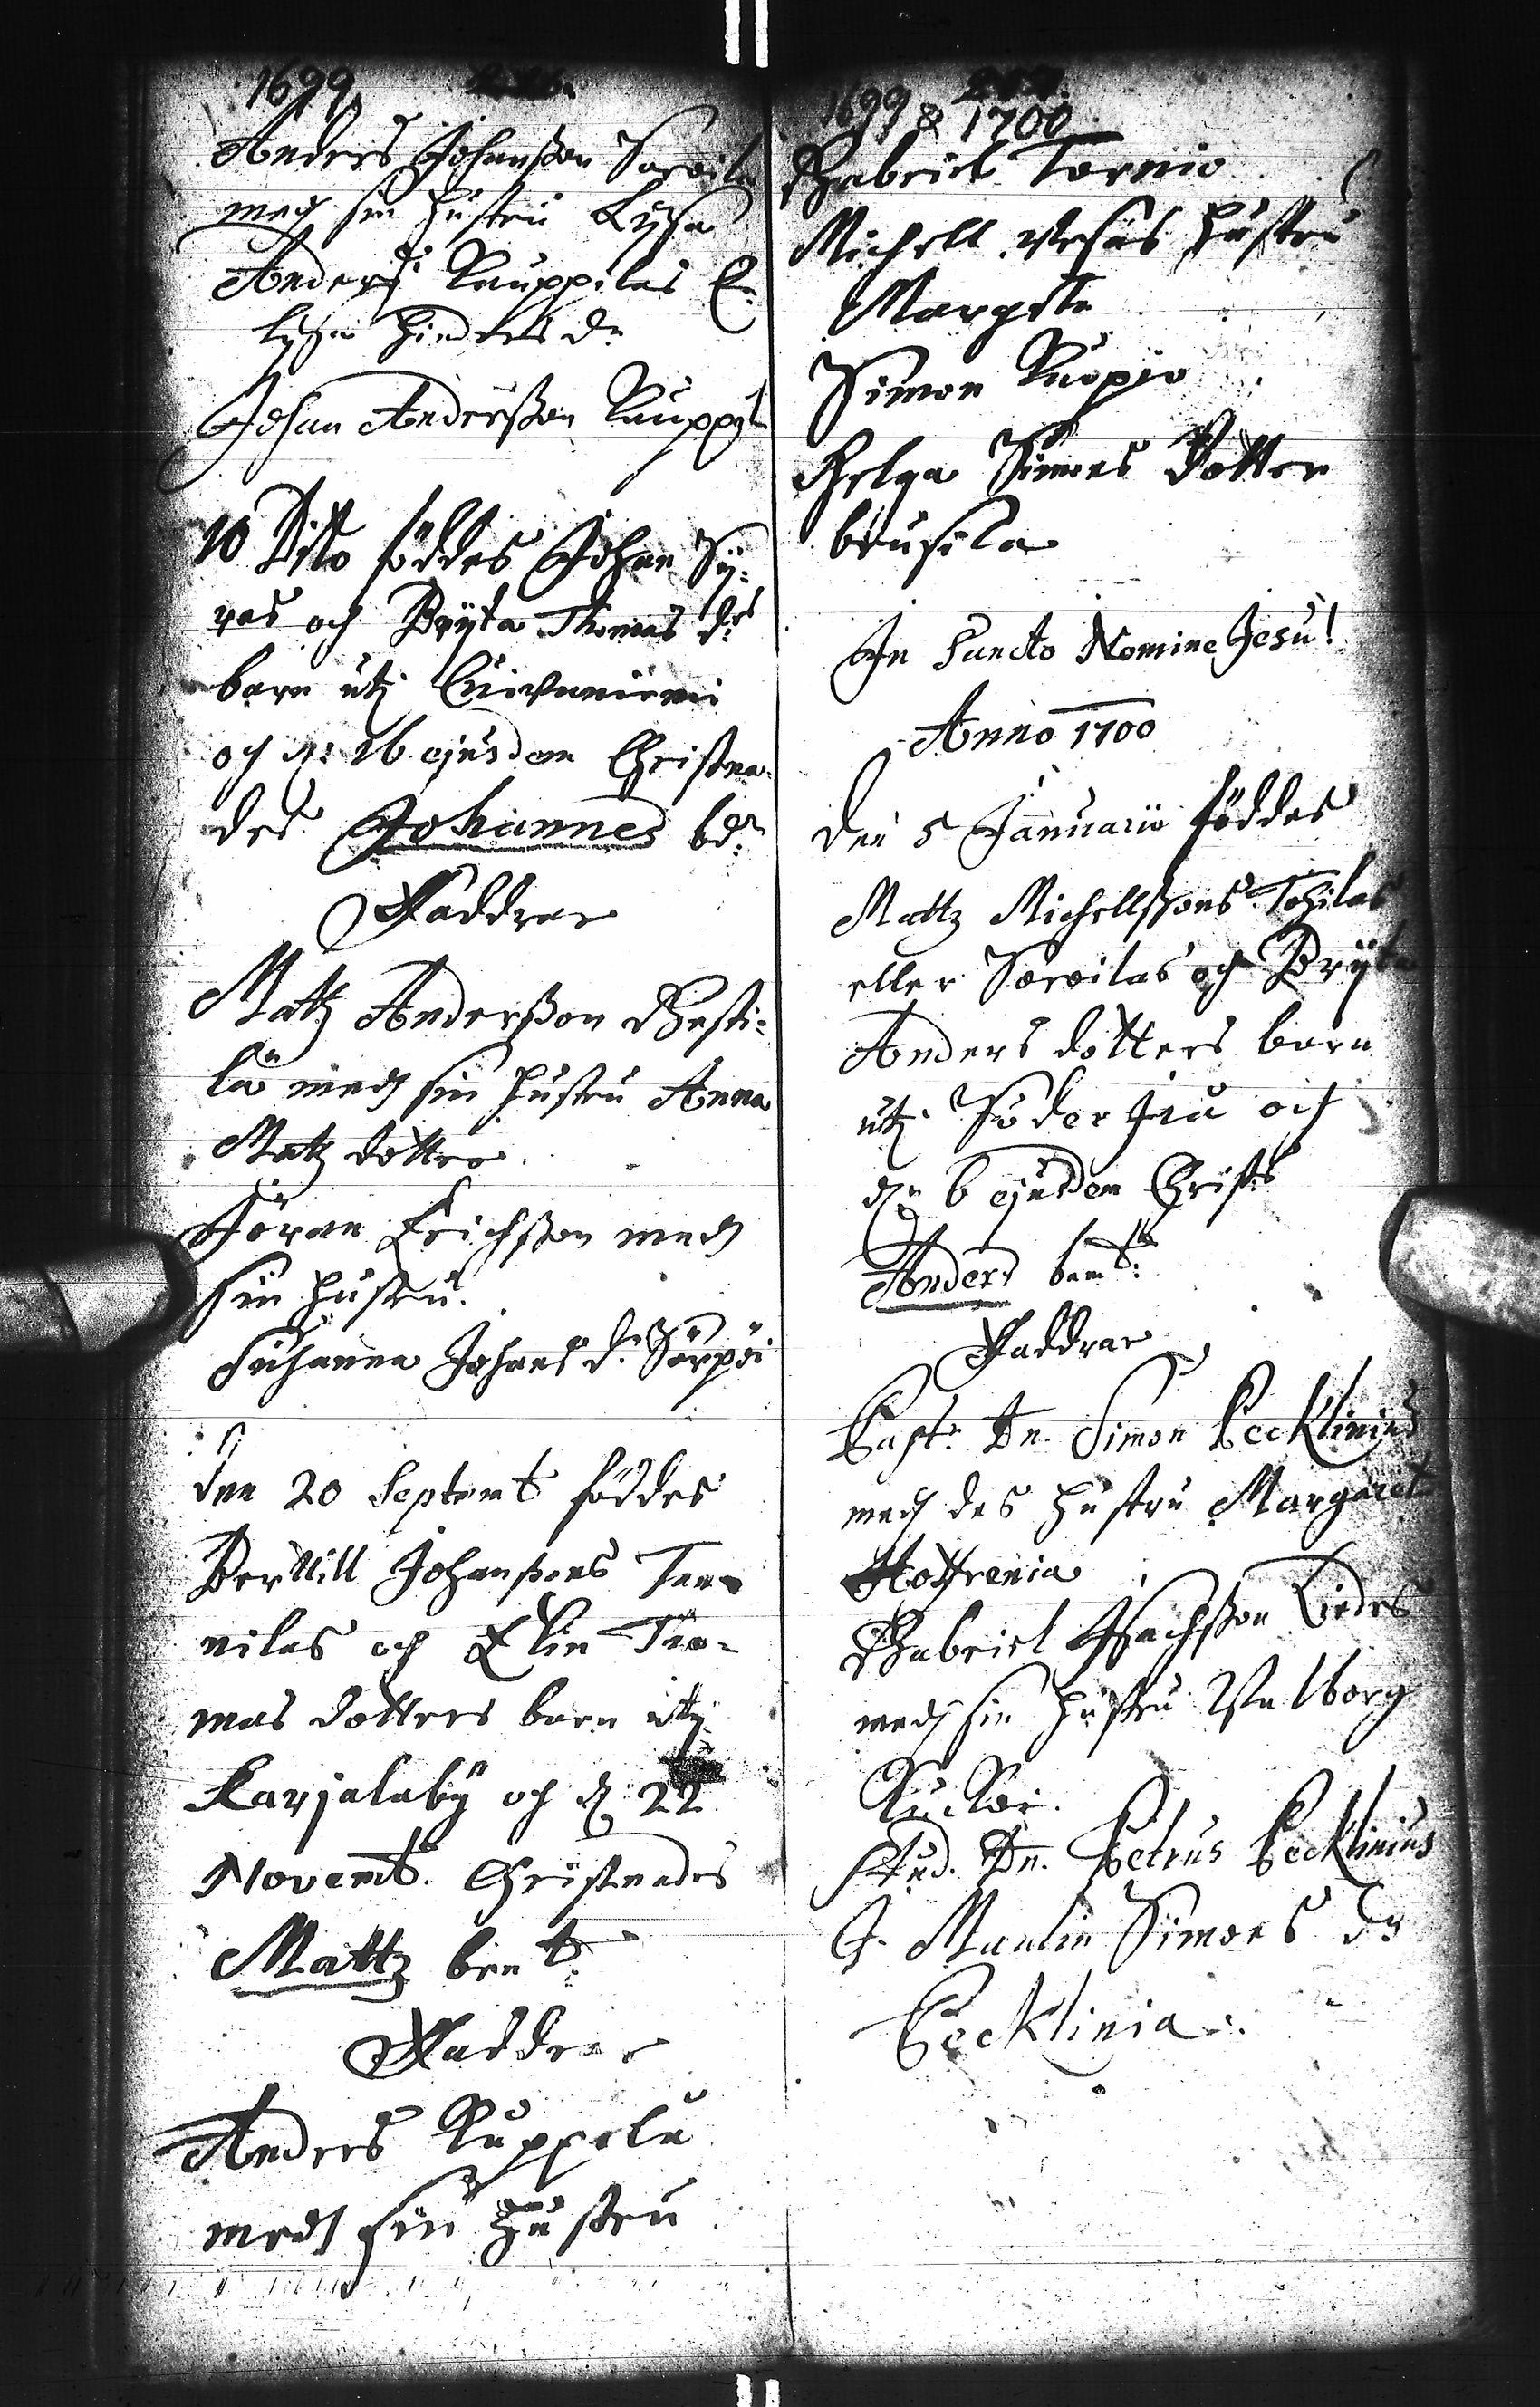 1699
Anders Johanßon Soroila
med sin hustru Lijsa
Anders Kauppilas E-
lysa Hindrs dr
Johan Anderßon Kauppil
10 Dito föddes Johan Sy-
ras och Bryta Thomas drs
barn utj Cuivaniemi
och dn 16 ejusdem Christna-
des Johannes bdr
Faddrar
Matz Anderßon Hesti-
la med sin hustru Anna
Matz dotter
Jöran Erichßon med
sin hustru.
Susanna Johans dr Sörpöi
den 20 Septemb föddes
Bertill Johanßons Tan-
nilas och Elin Tho-
mas dotters barn utj
Karjalaby och dn 22
Novemb. Christnades
Mattz bemt
Faddrar
Anders Kuppela
med sin hustru
1699 & 1700
Gabriel Tornio
Michell Vesas hustru
Margeta
Simon Kuopio
Helga Simons dotter
brusila
In Sancto Nomine Jesu!
Anno 1700
den 5 Januarii föddes
Mattz Michellßons Tohilas
eller Soroilas och Bryta
Anders dotters barn
utj Söder Jra och
dn 6 ejusdem Christs
Anders bemt:
Faddrar
Capl: Dn. Simon Pecklinius
med des hustru Margaret
Hoffrenia
Gabriel Isachßon Liedes
med sin hustru Valborg
Kuckoi.
Stud. Dn. Petrus Pecklinius
J. Maulin Simons dr
Pecklinia.